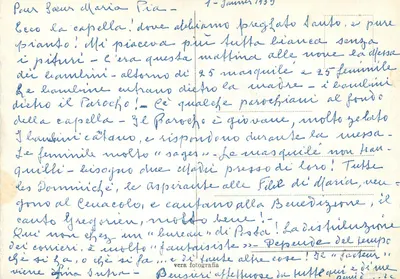 Pour Sœur Maria Pia - 1 - Janvier 1939
Ecco la capella! dove abbiamo preghato tanto, e pure
pianto! Mi piaceva più tutta bianca senza
i pituri - C'era questa mattina alle nove la messa
dei bambini - attorno di 25 masquile e 25 feminile
Le bambine entrano dietro la madre - i bambini
dietro il Parocho! - C'è qualche parochiani al fondo
della capella - Il Parocho è giovane, molto zelato
I bambini cantano, e rispondono durante la messa.
Le feminile molto "sages" - Le masquile non tran-
quilli - bisogno due
presso di loro! Tutte
le Domeniche, le aspirante alle Figl. di Maria, ven-
gono al Cenacolo, e cantano alla Benedizione, il
canto Gregorien, molto bene! -
Qui non c'hez un "bureau" di Posta! La distribuzione
dei corrieri, è molto "fantaisiste" - Depende del tempo
che si ha, o che si fa... e di tante altre cose! Il "facteur"
vera fotografia
viene
- Pensieri affettuose da tutti qui e di me